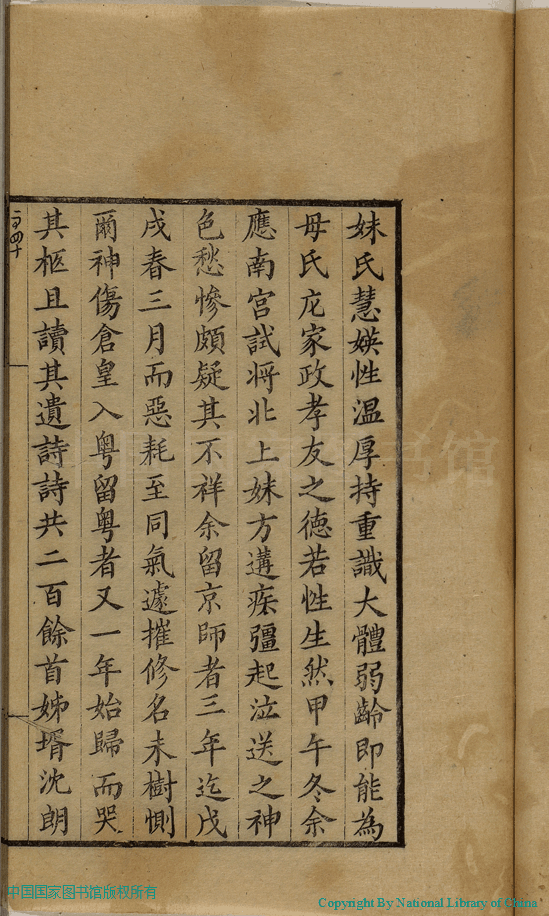 妹氏慧媖性温厚持重識大體弱齡即能為
母氏庀家政孝友之德若性生然甲午冬余
應南宫試将北上妹方遘疾彊起泣送之神
色愁慘頗疑其不祥余留京師者三年迄戊
戌春三月而惡耗至同氣遽摧修名未樹惻
爾神傷倉皇入粤留粤者又一年始歸而哭
其柩且讀其遺詩詩共二百餘首姊壻沈朗
中国国家图书馆版权所有
Copyright By National Library of China